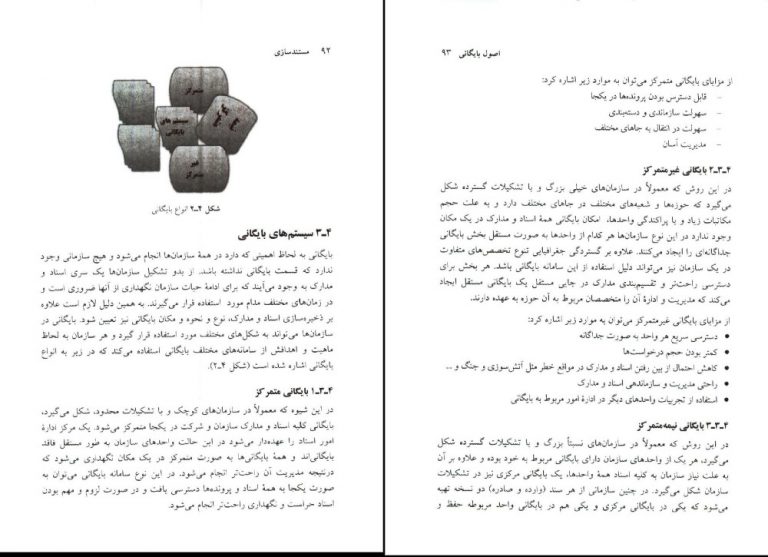 ۹۲ مستندسازی
متمرکز
سیستم های
بایگانی
غیر
متمرکز
شکل ۴ـ۲ انواع بایگانی
۴ـ۳ سیستم‌های بایگانی
بایگانی به لحاظ اهمیتی که دارد در همهٔ سازمان‌ها انجام می‌شود و هیچ سازمانی وجود
ندارد که قسمت بایگانی نداشته باشد. از بدو تشکیل سازمان‌ها یک سری اسناد و
مدارک به وجود می‌آیند که برای ادامهٔ حیات سازمان نگهداری از آنها ضروری است و
در زمان‌های مختلف مدام مورد استفاده قرار می‌گیرند. به همین دلیل لازم است علاوه
بر ذخیره‌سازی اسناد و مدارک، نوع و نحوه و مکان بایگانی نیز تعیین شود. بایگانی در
سازمان‌ها می‌تواند به شکل‌های مختلف مورد استفاده قرار گیرد و هر سازمان به لحاظ
ماهیت و اهدافش از سامانه‌های مختلف بایگانی استفاده می‌کند که در زیر به انواع
بایگانی اشاره شده است (شکل ۴ـ۲).
۴ـ۳ـ۱ بایگانی متمرکز
در این شیوه که معمولاً در سازمان‌های کوچک و با تشکیلات محدود، شکل می‌گیرد،
بایگانی کلیه اسناد و مدارک سازمان و شرکت در یکجا متمرکز می‌شود. یک مرکز ادارهٔ
امور اسناد را عهده‌دار می‌شود در این حالت واحدهای سازمان به طور مستقل فاقد
بایگانی‌اند و همهٔ بایگانی‌ها به صورت متمرکز در یک مکان نگهداری می‌شود که
درنتیجه مدیریت آن راحت‌تر انجام می‌شود. در این نوع سامانه بایگانی می‌توان به
صورت یکجا به همهٔ اسناد و پرونده‌ها دسترسی یافت و در صورت لزوم و مهم بودن
اسناد حراست و نگهداری راحت‌تر انجام می‌شود.
اصول بایگانی ۹۳
از مزایای بایگانی متمرکز می‌توان به موارد زیر اشاره کرد:
– قابل دسترس بودن پرونده‌ها در یکجا
– سهولت سازماندی و دسته‌بندی
– سهولت در انتقال به جاهای مختلف
– مدیریت آسان
۴ـ۳ـ۲ بایگانی غیرمتمرکز
در این روش که معمولاً در سازمان‌های خیلی بزرگ و با تشکیلات گسترده شکل
می‌گیرد که حوزه‌ها و شعبه‌های مختلف در جاهای مختلف دارد و به علت حجم
مکاتبات زیاد و با پراکندگی واحدها، امکان بایگانی همهٔ اسناد و مدارک در یک مکان
وجود ندارد در این نوع سازمان‌ها هر کدام از واحدها به صورت مستقل بخش بایگانی
جداگانه‌ای را ایجاد می‌کنند. علاوه بر گستردگی جغرافیایی تنوع تخصص‌های متفاوت
در یک سازمان نیز می‌تواند دلیل استفاده از این سامانه بایگانی باشد. هر بخش برای
دسترسی راحت‌تر و تقسیم‌بندی مدارک در جایی مستقل یک بایگانی مستقل ایجاد
می‌کند که مدیریت و ادارهٔ آن را متخصصان مربوط به آن حوزه به عهده دارند.
از مزایای بایگانی غیرمتمرکز می‌توان به موارد زیر اشاره کرد:
● دسترسی سریع هر واحد به صورت جداگانه
● کمتر بودن حجم درخواست‌ها
● کاهش احتمال از بین رفتن اسناد و مدارک در مواقع خطر مثل آتش‌سوزی و جنگ و ...
● راحتی مدیریت و سازماندهی اسناد و مدارک
● استفاده از تجربیات واحدهای دیگر در ادارهٔ امور مربوط به بایگانی
۴ـ۳ـ۳ بایگانی نیمه‌متمرکز
در این روش که معمولاً در سازمان‌های نسبتاً بزرگ و با تشکیلات گسترده شکل
می‌گیرد، هر یک از واحدهای سازمان دارای بایگانی مربوط به خود بوده و علاوه بر آن
به علت نیاز سازمان به کلیه اسناد همهٔ واحدها، یک بایگانی مرکزی نیز در تشکیلات
سازمان شکل می‌گیرد. در چنین سازمانی از هر سند (وارده و صادره) دو نسخه تهیه
می‌شود که یکی در بایگانی مرکزی و یکی هم در بایگانی واحد مربوطه حفظ و